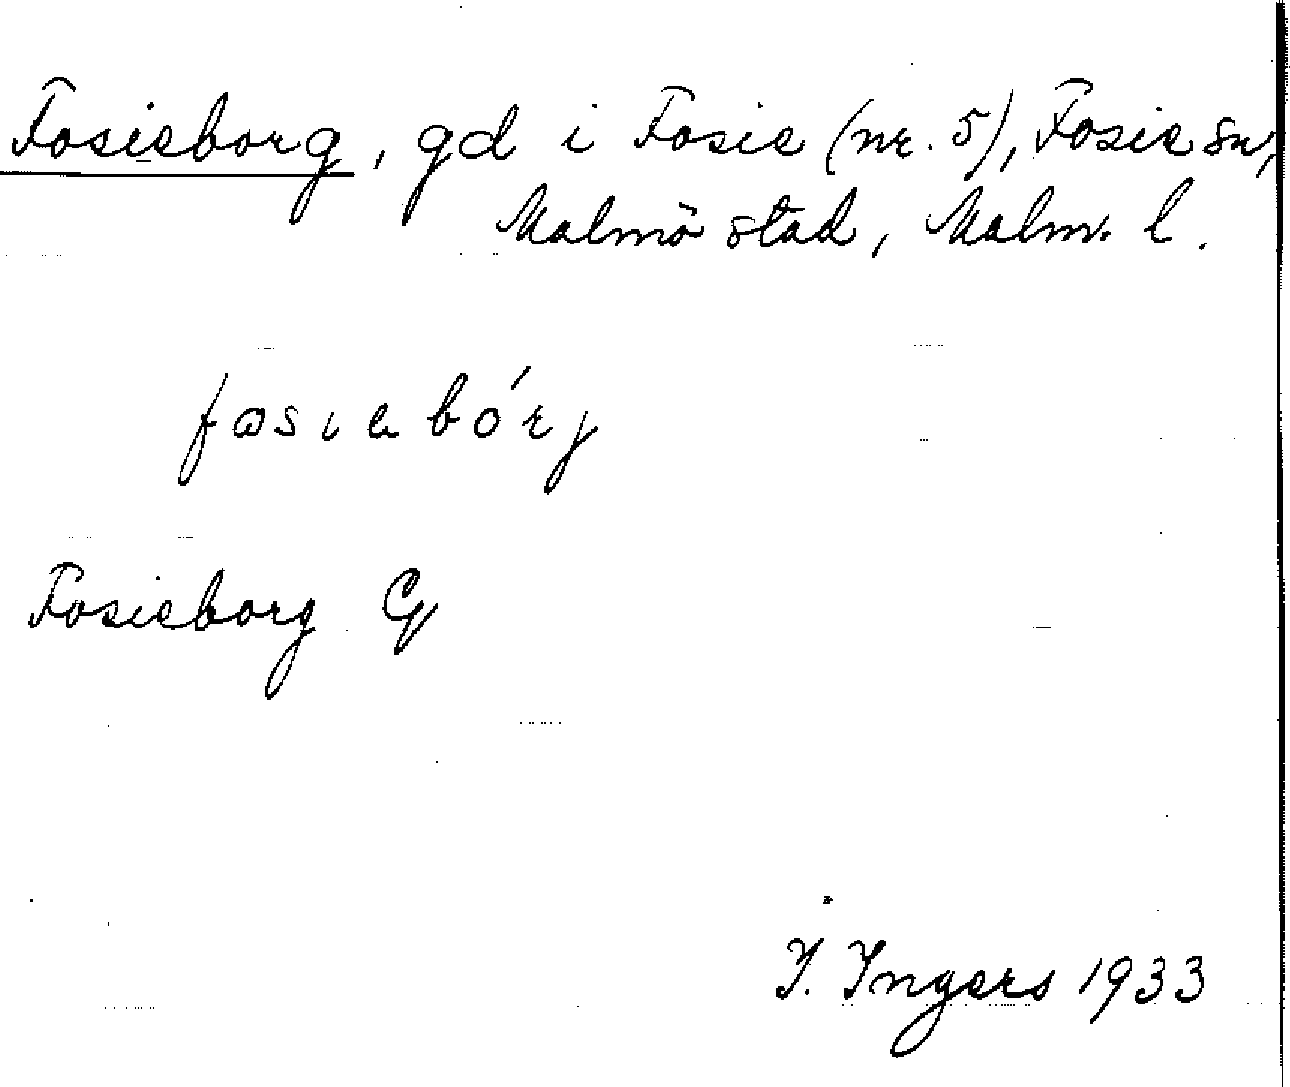 Fosieborg, gd i Fosie (nr. 5), Fosie sn,
Malmö stad, Malm. l.
fosıabórj
Fosieborg G
I. Ingers 1933